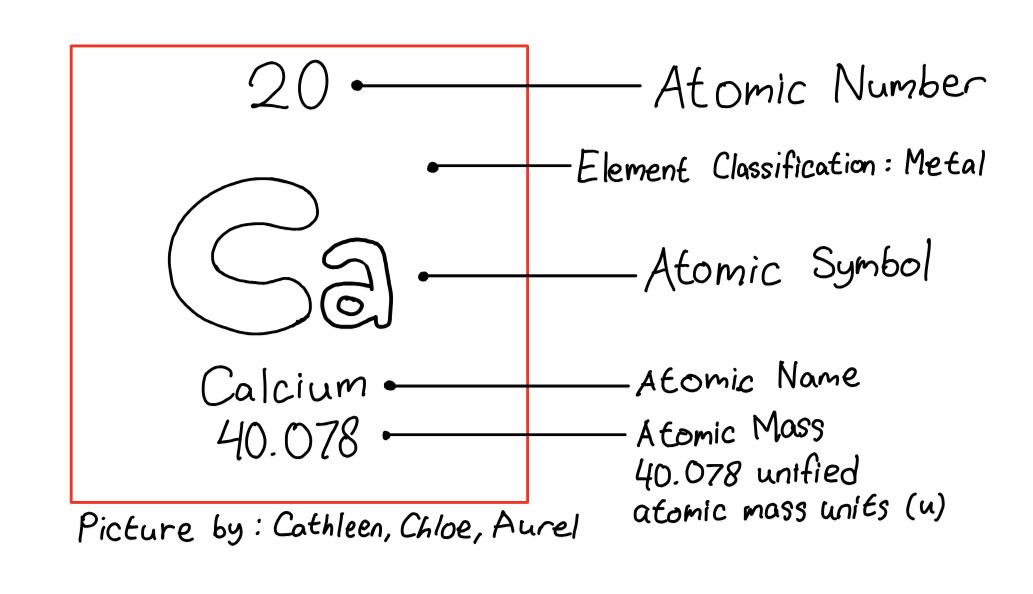 20
Atomic Number
Element Classification: Metal
Ca
Atomic Symbol
Calcium
Atomic Name
40.078
Atomic Mass
40.078 unified
atomic mass units (u)
Picture by: Cathleen, Chloe, Aurel